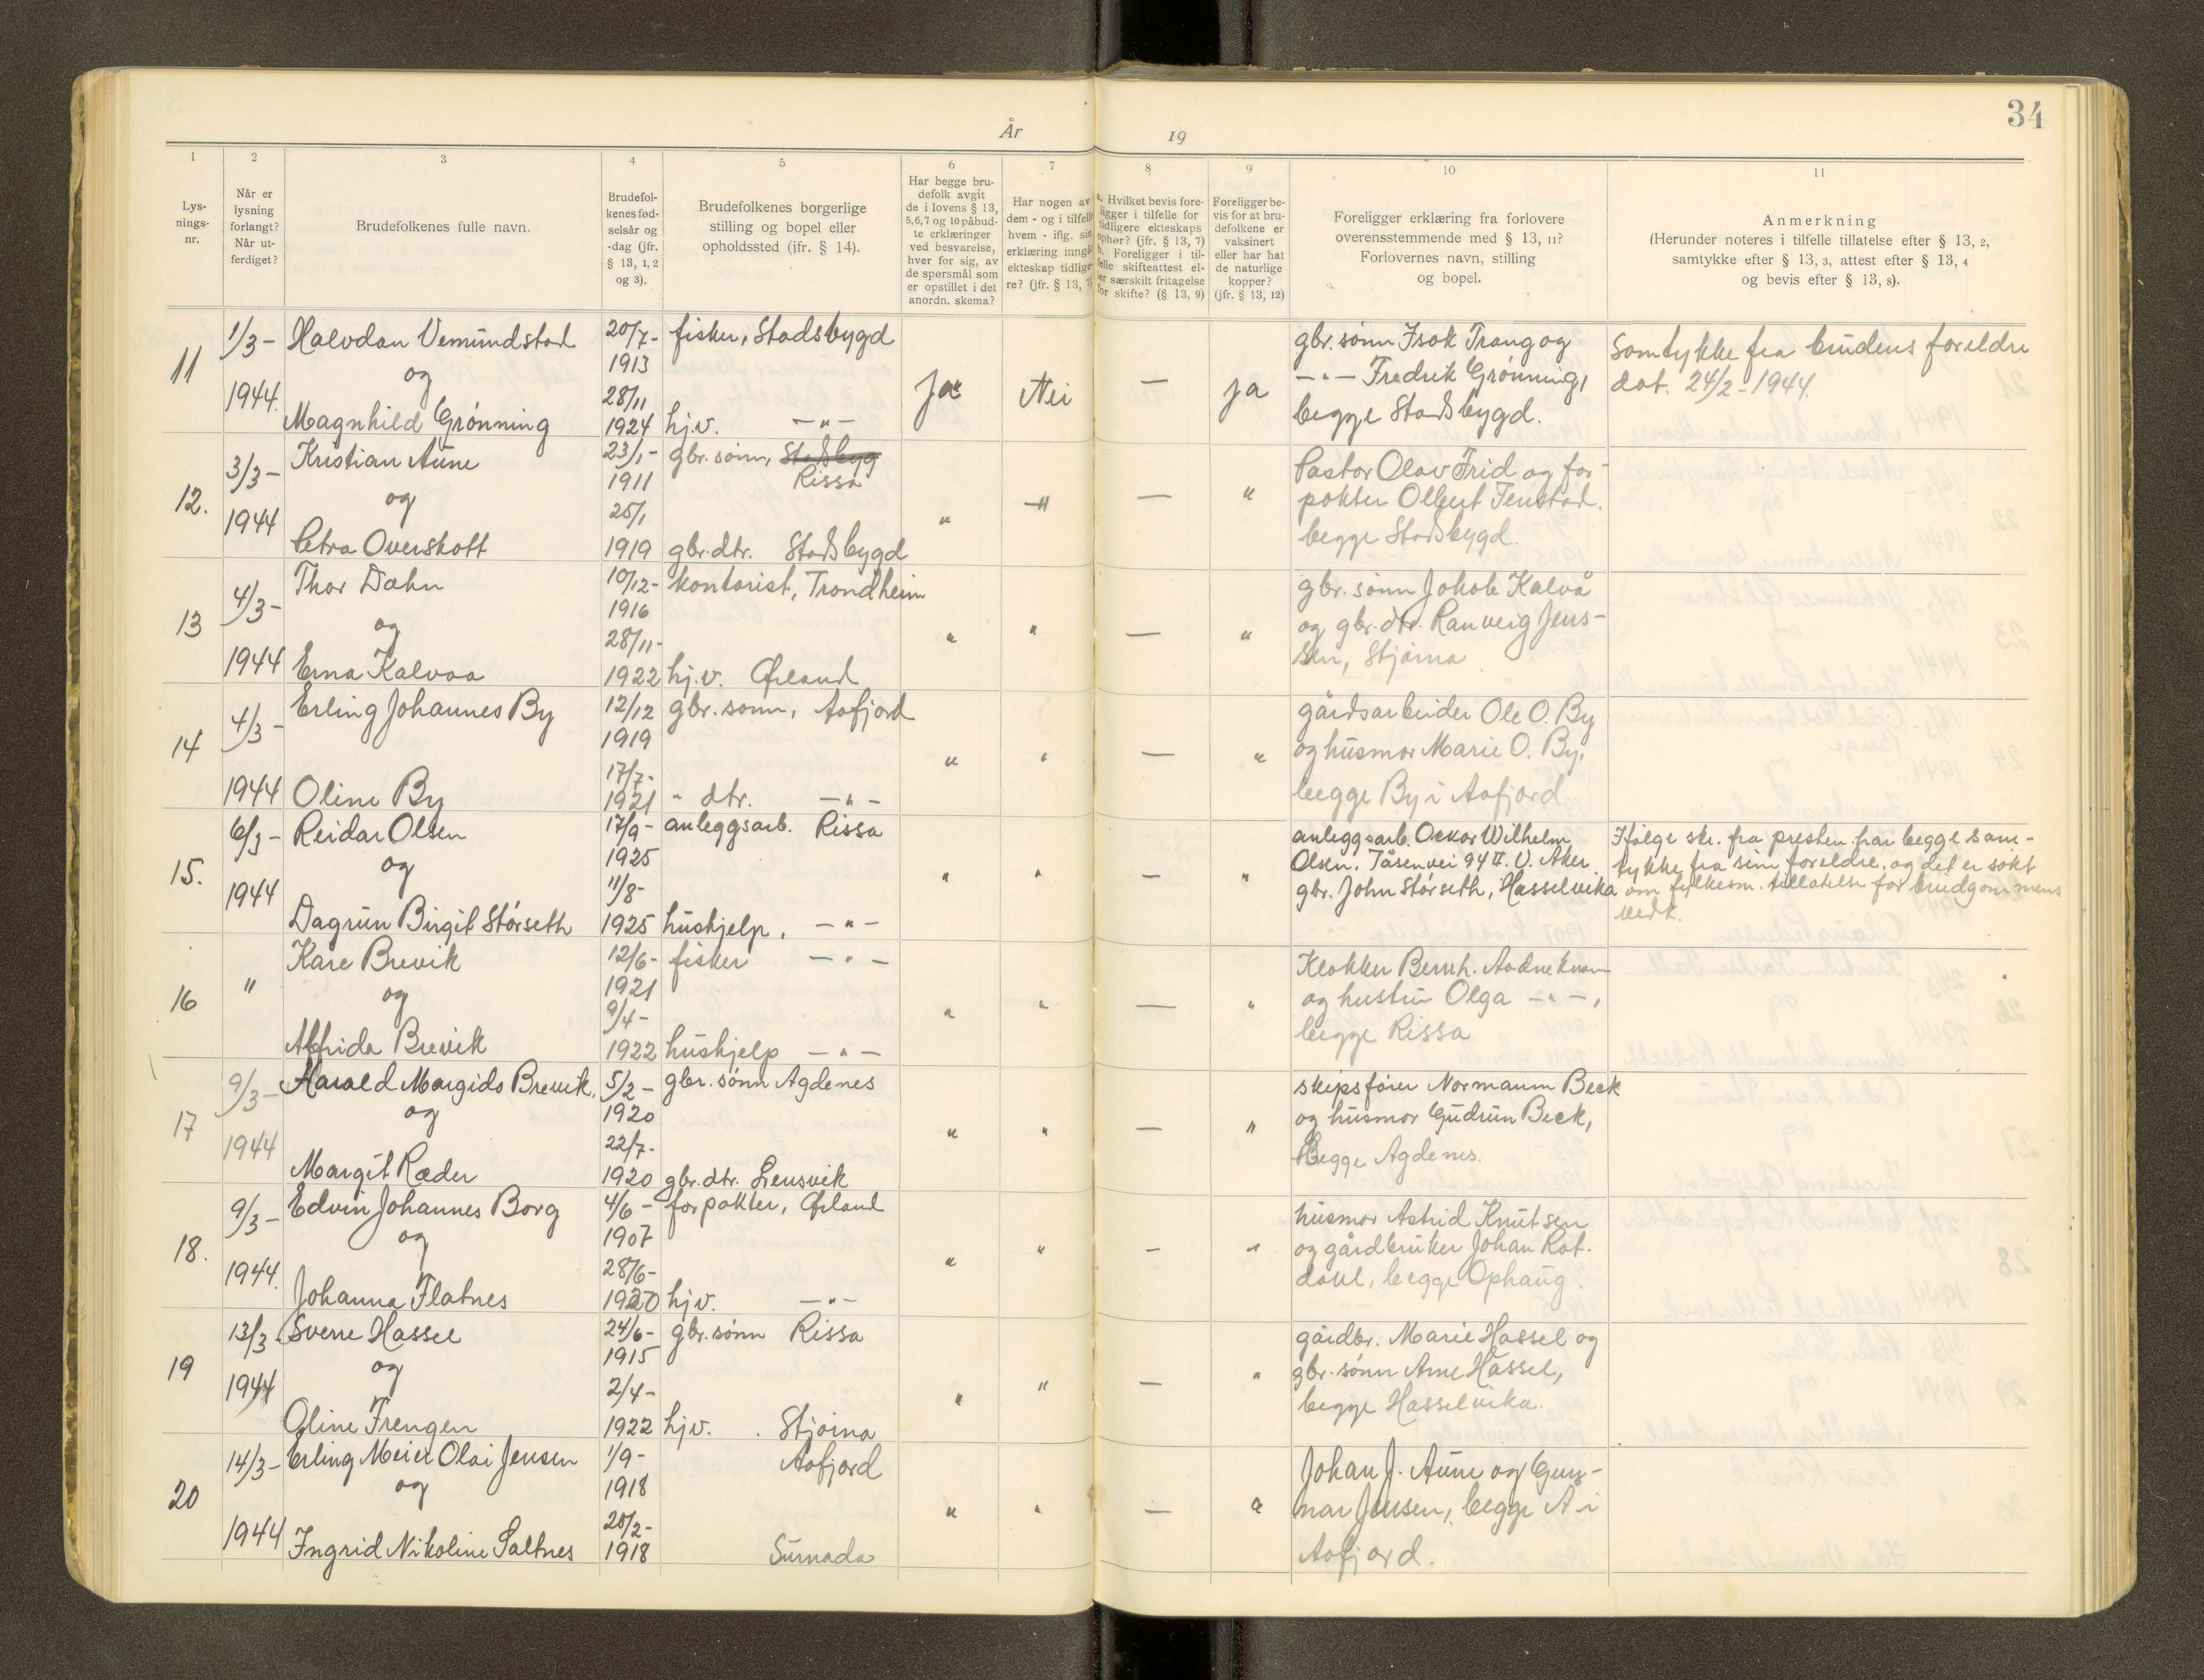 34
År 19
1
Lys-
nings-
nr.
2
Når er
lysning
forlangt?
Når ut-
ferdiget?
3
Brudefolkenes fulle navn.
4
Brudefol-
kenes fød-
selsår og
-dag (jfr.
§ 13, 1, 2
og 3).
5
Brudefolkenes borgerlige
stilling og bopel eller
opholdssted (ifr. § 14).
6
Har begge bru-
defolk avgit
de i lovens § 13,
5,6,7 og 10 påbud-
te erklæringer
ved besvarelse,
hver for sig, av
de spørsmål som
er opstillet i det
anordn. skema?
7
Har nogen av
dem - og i tilfelle
hvem - iflg. sin
erklæring inngå
ekteskap tidlige-
re? (jfr. § 13, 7)
8
a. Hvilket bevis fore-
ligger i tilfelle for
tidligere ekteskaps
ophør? (jfr. § 13, 7)
b. Foreligger i til-
felle skifteattest el-
ler særskilt fritagelse
for skifte? (§ 13, 9)
9
Foreligger be-
vis for at bru-
defolkene er
vaksinert
eller har hat
de naturlige
kopper?
(jfr. § 13, 12)
10
Foreligger erklæring fra forlovere
overensstemmende med § 13, 11?
Forlovernes navn, stilling
og bopel.
11
Anmerkning
(Herunder noteres i tilfelle tillatelse efter § 13, 2,
samtykke efter § 13, 3, attest efter § 13, 4
og bevis efter § 13, 8).
11
1/3-
1944.
Halvdan Vemundstad
og
Magnhild Grönning
20/7-
1913
28/11
1924
fisker, Stadsbygd
hj.v. —"—
Ja
Nei
—
ja
gbr. sönn Isak Trang og
—"— Fredrik Grönning,
begge Stadsbygd.
Samtykke fra brudens foreldre
dat. 24/2-1944.
12.
3/3-
1944
Kristian Aune
og
Petra Overskott
23/1-
1911
25/1
1919
gbr. sönn, Stadsbyg
Rissa
gbr. dtr. Stadsbygd
"
"
—
"
Pastor Olav Frid og for-
pakter Olbert Fenstad.
begge Stadsbygd.
13
4/3-
1944
Thor Dahn
og
Erna Kalvaa
10/12-
1916
28/11-
1922
kontorist, Trondheim
hj.v. Ørland
"
"
—
"
gbr. sönn Jakob Kalvå
og gbr. dtr. Ranveig Jens-
sen, Stjörna
14
4/3-
1944
Erling Johannes By
Oline By
12/12
1919
17/7-
1921
gbr. sönn, Aafjord
" dtr. —"—
"
"
—
"
gårdsarbeider Ole O. By
og husmor Marie O. By,
begge By i Aafjord
15.
6/3-
1944
Reidar Olsen
og
Dagrun Birgit Störseth
17/9-
1925
11/8-
1925
anleggsarb. Rissa
hushjelp, —"—
"
"
—
"
anleggsarb. Oskar Wilhelm
Olsen, Tåsenvei 94 II. V. Aker.
gbr. John Störseth, Hasselvika
Ifølge skr. fra presten har begge sam-
tykke fra sine foreldre, og det er søkt
om fylkesm. tillatelse for brudgommens
vedk.
16
"
Kare Brevik
og
Alfrida Brevik
12/6-
1921
9/4-
1922
fisker —"—
hushjelp —"—
"
"
—
"
Klokker Bernh.
og hustru Olga —"—,
begge Rissa
17
9/3-
1944
Harald Margido Brevik.
og
Margit Ræder
5/2-
1920
22/7-
1920
gbr. sönn Agdenes
gbr. dtr. Lensvik
"
"
—
"
skipsförer Normann Beck
og husmor Gudrun Beck,
Begge Agdenes.
18.
9/3-
1944.
Edvin Johannes Borg
og
Johanna Flatnes
4/6-
1907
28/6-
1920
forpakter, Ørland
hjv. —"—
"
"
—
"
husmor Astrid Knutsen
og gårdbruker Johan Rot-
dahl, begge Ophaug.
19
13/3-
1944
Sverre Hassel
og
Oline Frengen
24/6-
1915
2/4-
1922
gbr. sönn Rissa
hjv. Stjörna
"
"
—
"
gårdbr. Marie Hassel og
gbr. sönn Arne Hassel,
begge Hasselvika.
20
14/3-
1944
Erling Meier Olai Jensen
og
Ingrid Nikoline Saltnes
1/9-
1918
20/2-
1918
Aafjord
Surnada
"
"
—
"
Johan J. Aune og Gun-
nar Jensen, begge Å i
Aafjord.